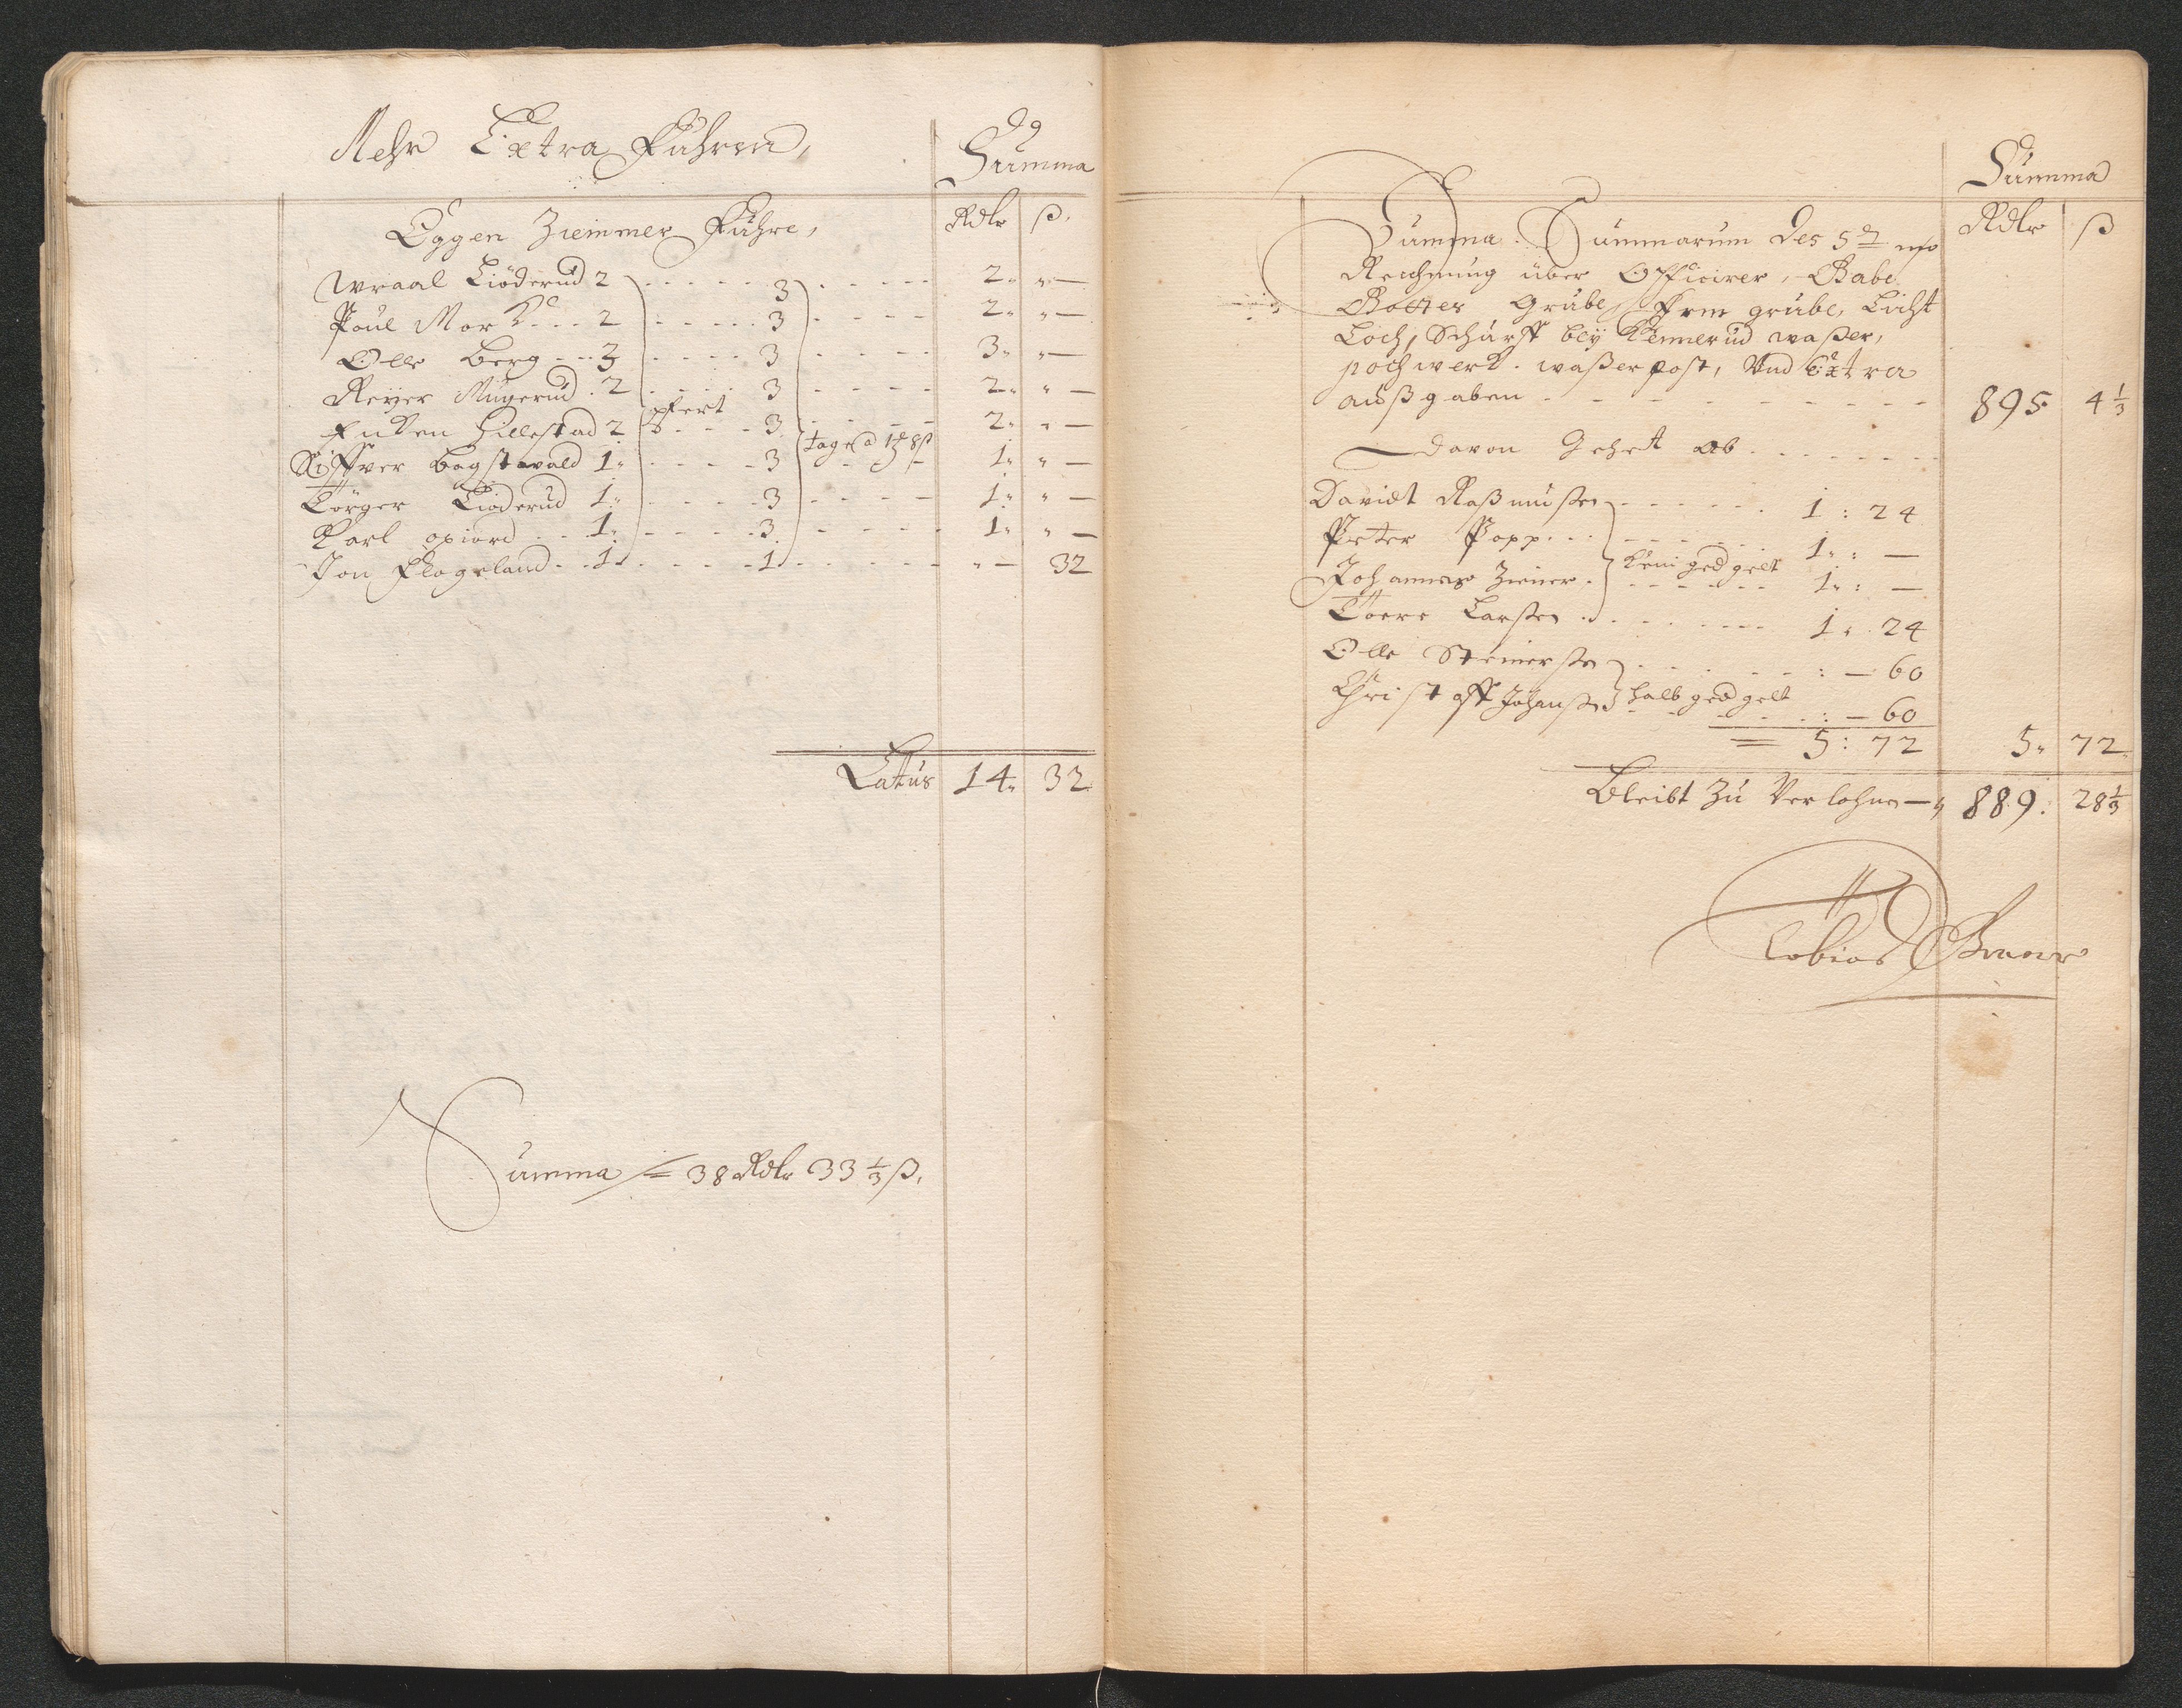 Mehr Extra Fuhren,
Summa
Eggen Ziemmer Fuhre,
Rdlr ß.
Wraal Liöderud 2 3 2 " —
Poul Mork 2 3 2 " —
Olle Berg 3 3 3 " —
Reyer Mugerud 2 3 2 " —
Encken Hillestad 2 pfert 3 2 " —
Siffver Bagstevald 1 3 tage a 1 8ß 1 " —
Törger Liöderud 1 3 1 " —
Karl opiord 1 3 1 " —
Jon Flogeland 1 1 " — 32
Latus 14 " 32
Summa = 38 Rdlr 33 1/3 ß.
Summa
Rdlr ß
Summa Summarum des 5
Rechnung über Officirer,
Grube, grube, Licht
Loch, Schürff bey Kennerud waßer,
pochwerk. waßerpost, Und Extra
außgaben 895 4 1/3
Davon Gehet ab
Davidt Raßmußen 1 : 24
Peter Popp 1 : —
Johannes Ziener kein ged gelt 1 : —
Toere Larßen 1 : 24
Olle Steinerßen : — 60
Christoff Johanßen halb ged gelt : — 60
= 5 : 72 5 " 72
Bleibt Zu Verlohnen — 889 : 28 1/3
Tobias